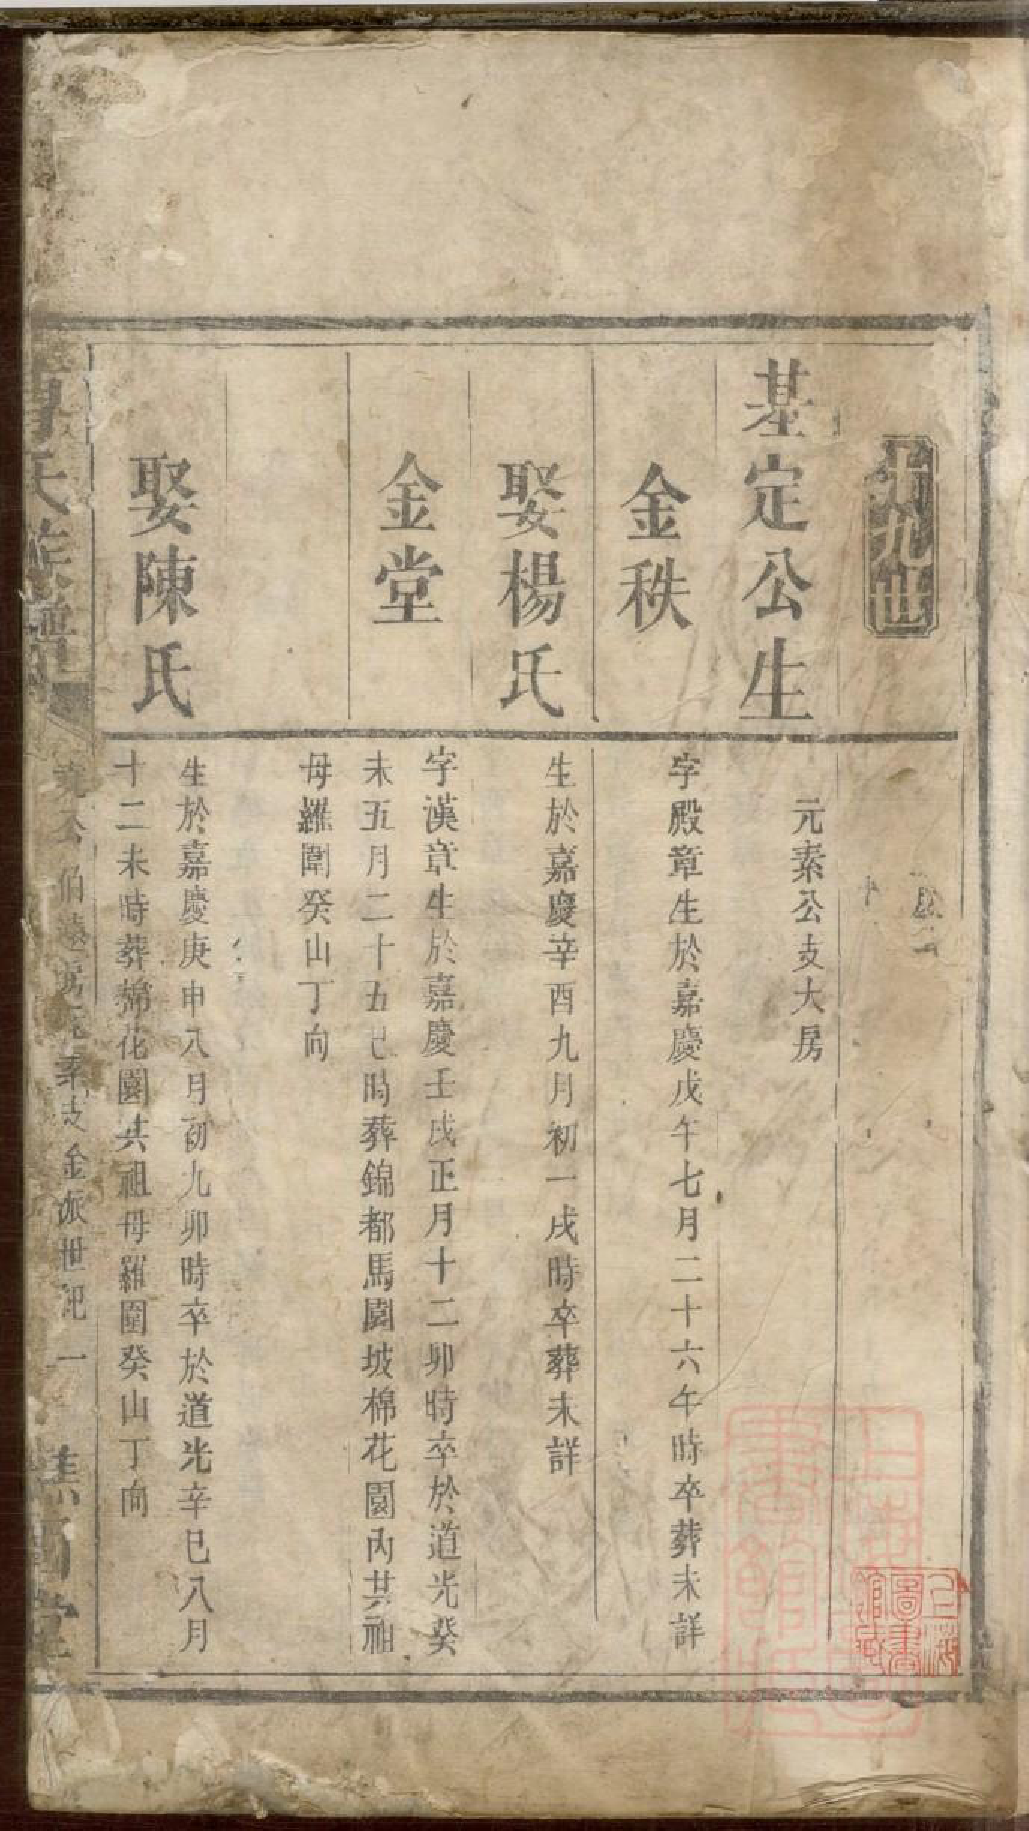 十九世
基定公生
元素公支大房
金秩
字殿章生於嘉慶戊午七月二十六午時卒葬未詳
娶楊氏
生於嘉慶辛酉九月初一戌時卒葬未詳
金堂
字漢章生於嘉慶壬戌正月十二卯時卒於道光癸
未五月二十五巳時葬錦都馬園坡棉花園內共祖
母羅圍癸山丁向
娶陳氏
生於嘉慶庚申八月初九卯時卒於道光辛巳八月
十二未時葬棉花園共祖母羅圍癸山丁向
氏族譜
公伯遠房元素支金派世記 一
堂
上海圖書館藏